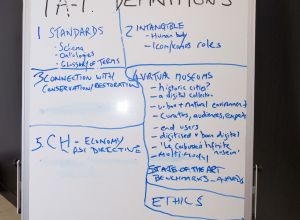 DEFINITIONS
1 STANDARDS
- Schema
- Ontologies
- GLOSSARY OF TERMS
2 INTANGIBLE
- Human body
- Icon/ roles
3 CONNECTION WITH
CONSERVATION/RESTORATION
VIRTUAL MUSEUMS
- historic cities?
- a digital collection
- urban + natural environment
- Curators, audiences, experts
- end users
- digitised + born digital
- museum"
- multimodal
5. CH - ECONOMY
PSI DIRECTIVE
STATE OF THE ART
BENCHMARKS - AWARDS
ETHICS